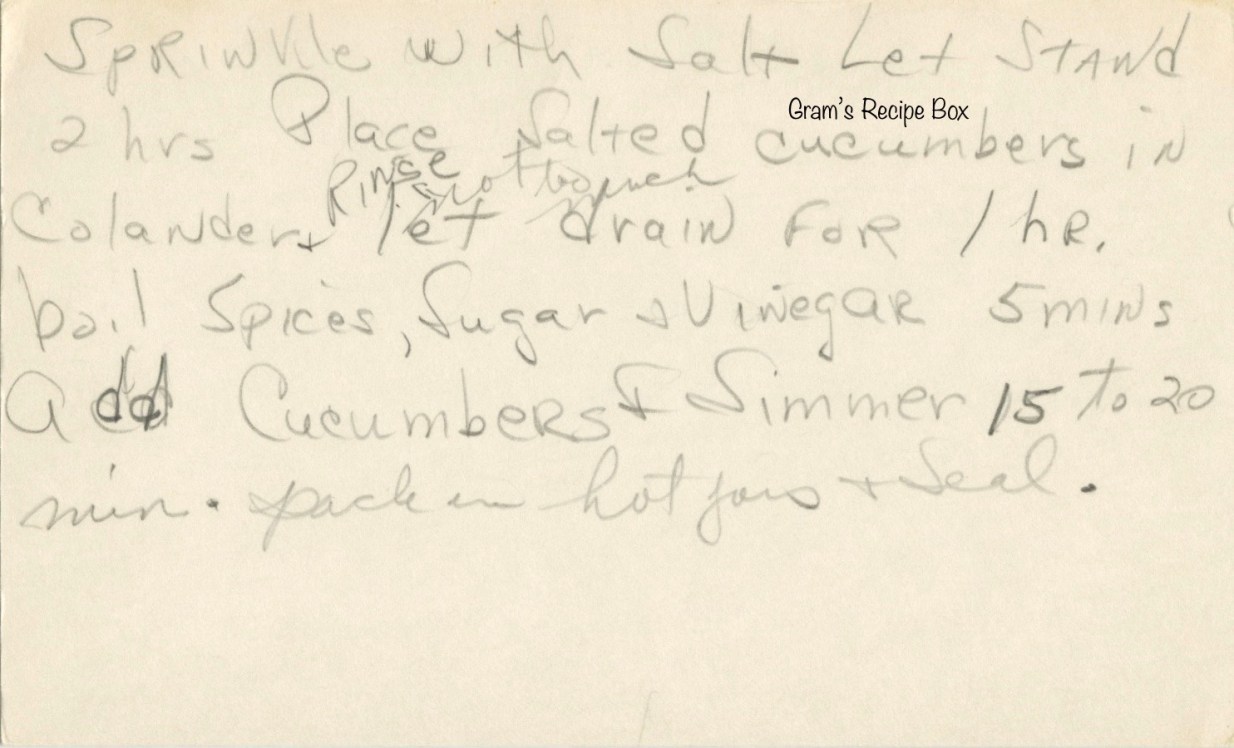 Sprinkle with Salt Let Stand
Gram's Recipe Box
2 hrs Place Salted cucumbers in
Rinse not too much
Colander + let drain For 1 hr.
boil Spices, Sugar + Vinegar 5 mins
add Cucumbers + Simmer 15 to 20
min. pack in hot jars + Seal.